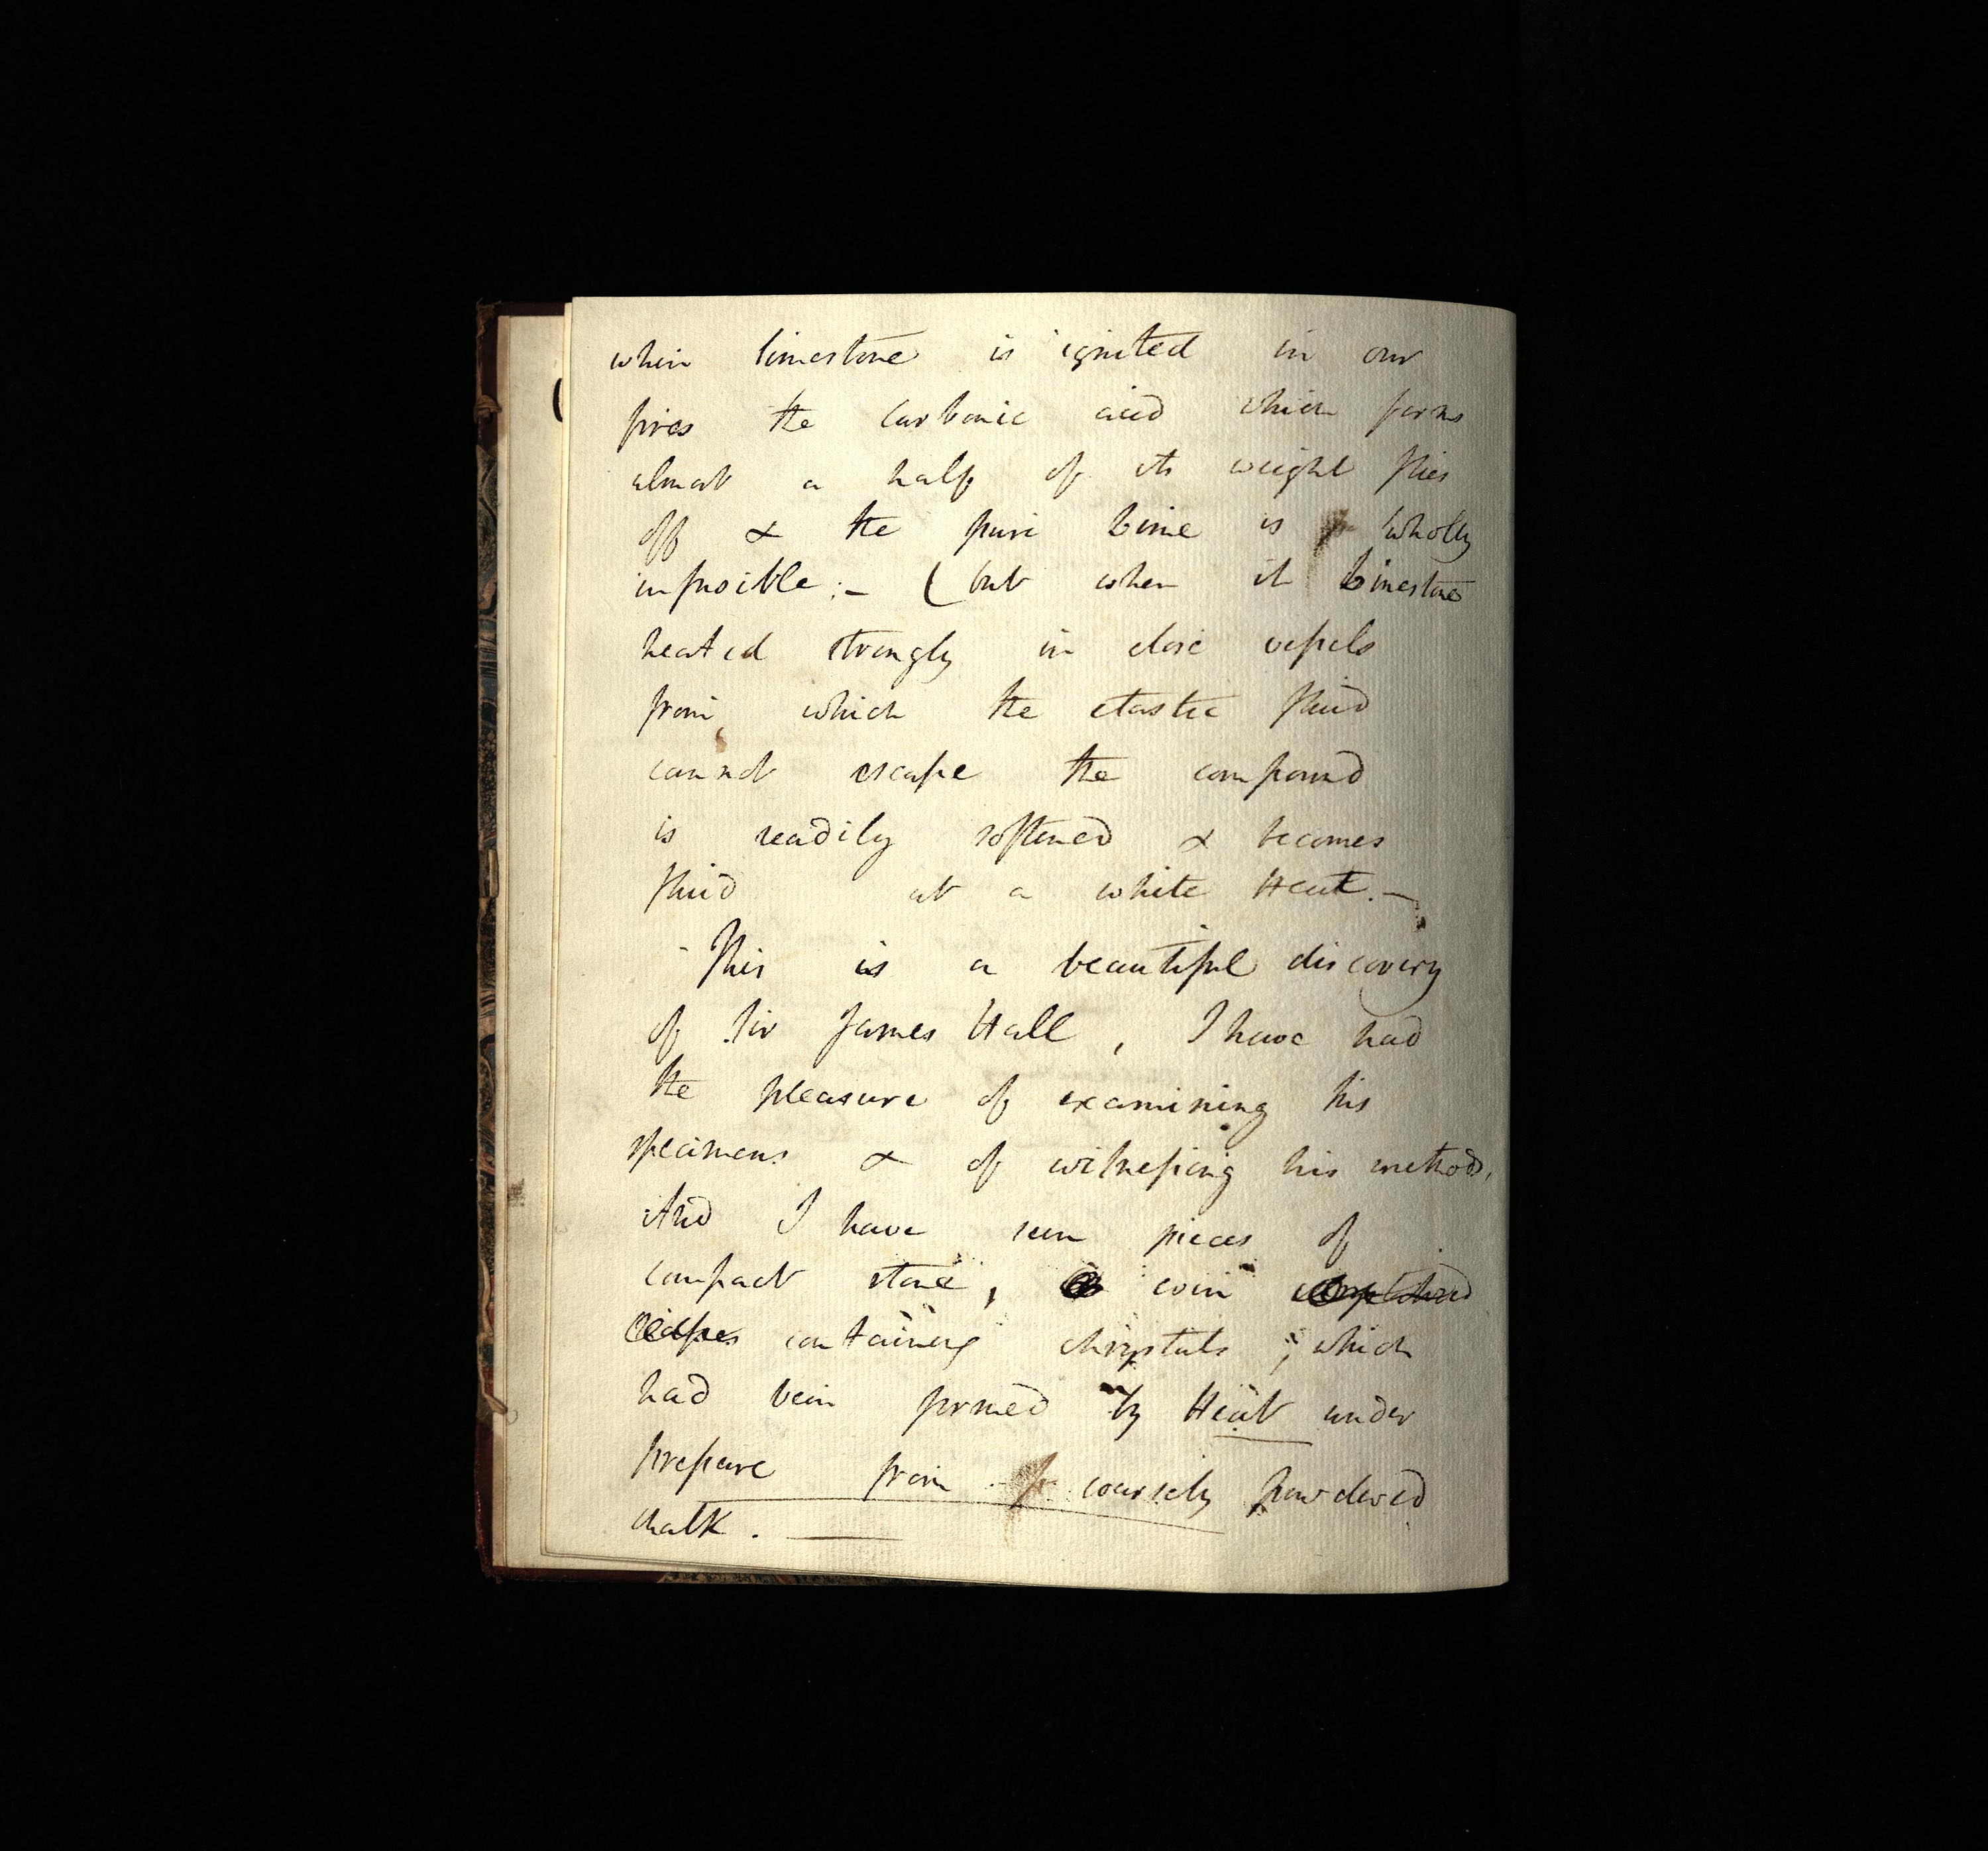 when limestone is ignited in our
fires the carbonic acid which forms
almost a half of its weight flies
off & the pure Lime is wholly
infusible:– (but when it Limestone
heated strongly in close vessels
from which the elastic fluid
cannot escape the compound
is readily softened & becomes
fluid at a white Heat.–
This is a beautiful discovery
of Sir James Hall, I have had
the pleasure of examining his
specimens & of witnessing his methods,
And I have seen pieces of
compact stone, even
containing chrystals; which
had been formed by Heat under
pressure from coarsely powdered
chalk. —